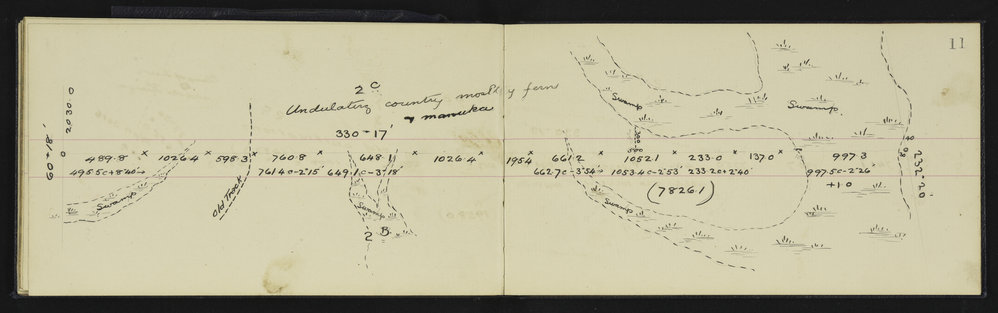 11
2 C
Undulating country mostly fern
& manuka
330-17'
2030.0
60-18'
0
489.8 × 1026.4 × 598.3 × 760.8 × 648.1 × 1026.4 × 195.4 × 661.2 × 1052.1 × 233.0 × 137.0 × 997.3
495.5c+8°40' 761.4c-2°15' 649.1c-3°18' 662.7c-3°54' 1053.4c-2°53' 233.2c+2°40' 997.5c-2°26'
+1.0
(7826.1)
232°20'
Swamp
Old Track
Swamp
2 B
Swamp
Swamp
Swamp